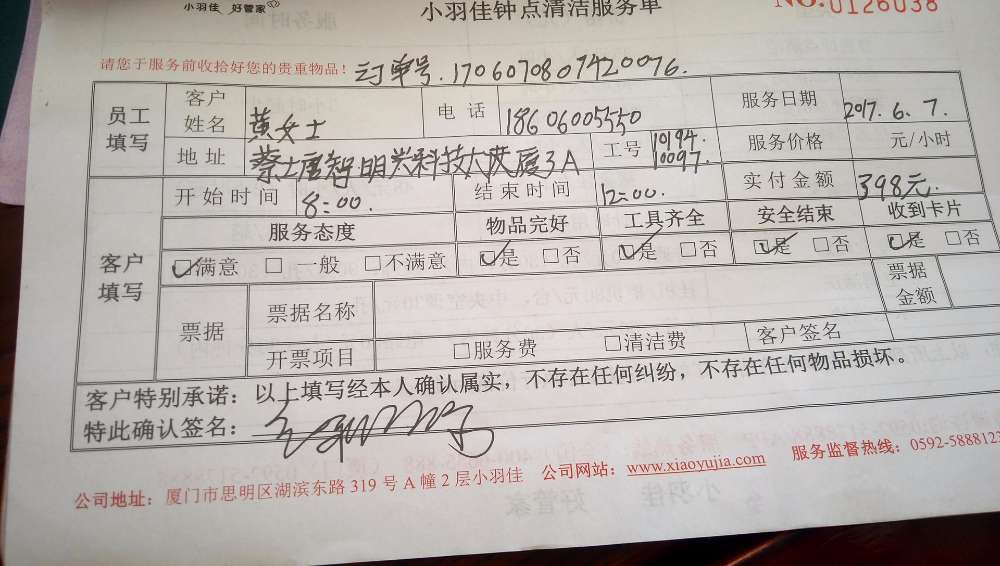 小羽佳 好管家
小羽佳钟点清洁服务单
NO.0126038
请您于服务前收拾好您的贵重物品！ 订单号.1706070807420076.
员工填写 客户姓名 黄女士 电话 18606005550 服务日期 2017.6.7.
地址 智明兴科技大厦3A 工号 10194. 10097. 服务价格 元/小时
客户填写 开始时间 8:00. 结束时间 12:00. 实付金额 398元.
服务态度 物品完好 工具齐全 安全结束 收到卡片
☑满意 □一般 □不满意 ☑是 □否 ☑是 □否 ☑是 □否 ☑是 □否
票据 票据名称 票据金额
开票项目 □服务费 □清洁费 客户签名
客户特别承诺：以上填写经本人确认属实，不存在任何纠纷，不存在任何物品损坏。
特此确认签名：
公司地址：厦门市思明区湖滨东路319号A幢2层小羽佳 公司网站：www.xiaoyujia.com 服务监督热线：0592-5888123